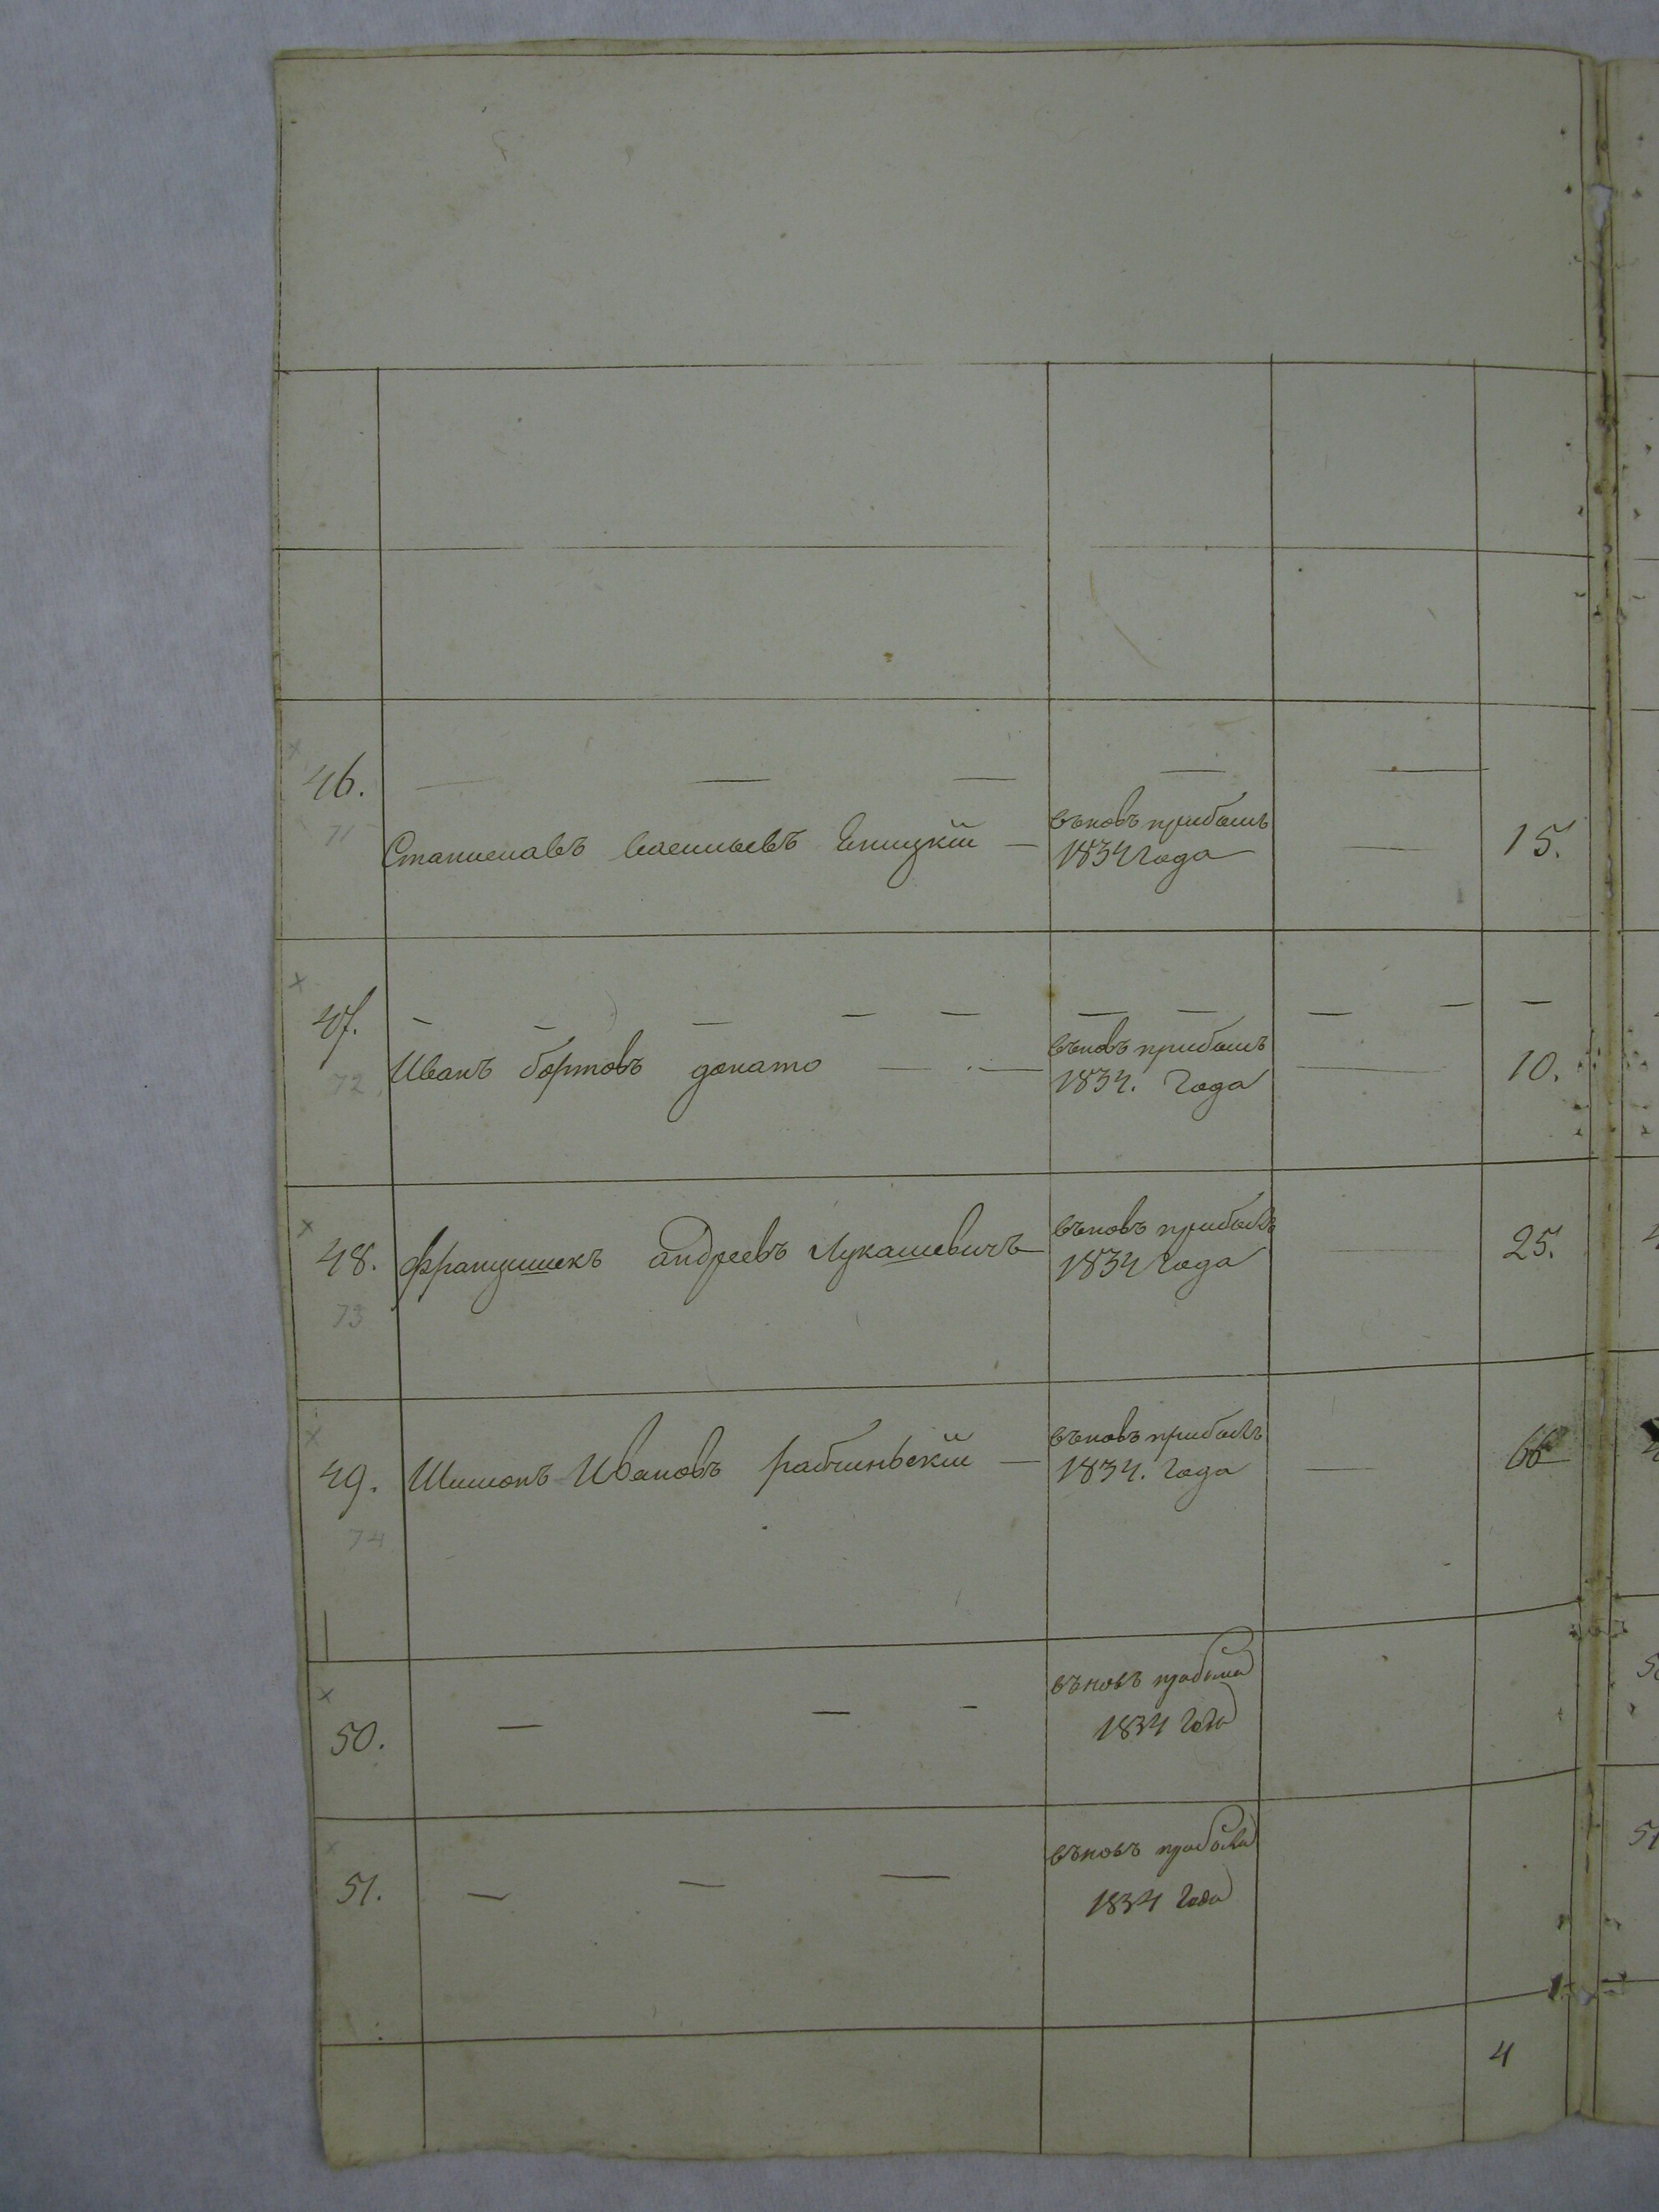 46. — — — — —
71
Станиславъ Еницкій — вновь прибылъ
1834 года — 15.
47. — — — — — — — — — —
72
Иванъ бортовъ донато — — въновь прибылъ
1834. Года — 10.
48. францишекъ андреевъ Лукашевичъ въновъ прибылъ
1834 года 25.
73
49. Шимонъ Ивановъ рабчиньскій — въновь прибылъ
1834. Года — 66
74
50. — — - въновъ прибыла
1834 Года
51. — — — въновъ прибыла
1834 Года
4